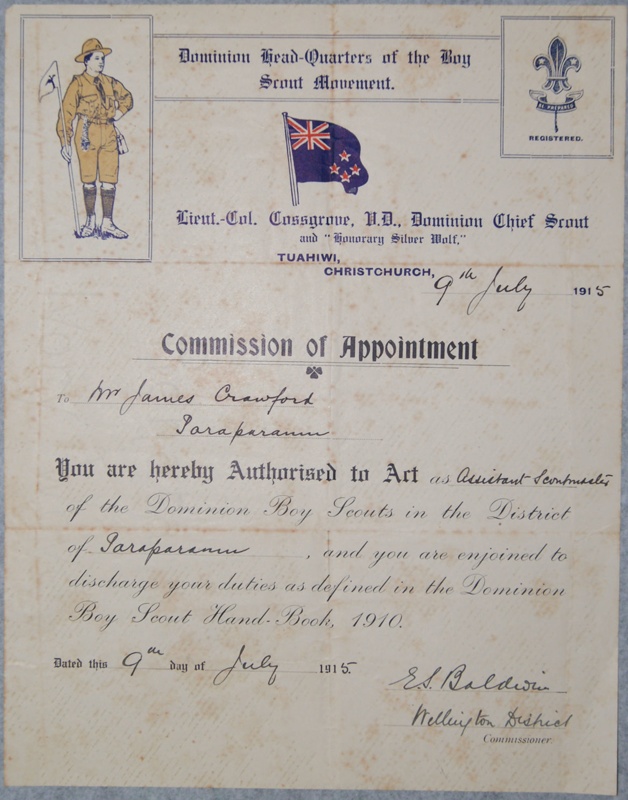 Dominion Head-Quarters of the Boy
Scout Movement.
BE PREPARED
REGISTERED.
Lieut.-Col. Cossgrove, V.D., Dominion Chief Scout
and "Honorary Silver Wolf,"
TUAHIWI,
CHRISTCHURCH,
9th July 1915
Commission of Appointment
To Mr James Crawford
Paraparamu
You are hereby Authorised to Act as Assistant Scoutmaster
of the Dominion Boy Scouts in the District
of Paraparamu, and you are enjoined to
discharge your duties as defined in the Dominion
Boy Scout Hand-Book, 1910.
Dated this 9th day of July 1915.
E.S. Baldwin
Wellington District
Commissioner.